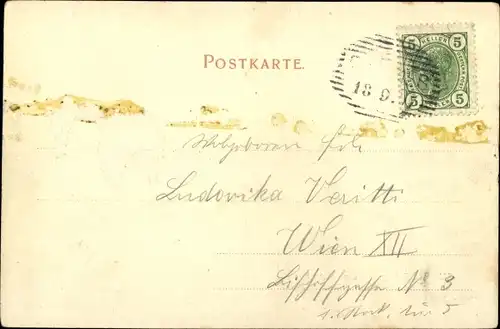 POSTKARTE.
5 HELLER 5
18 9
5 5
Wohlgeboren Frl.
Ludovika Veritti
Wien XII
Bischoffgasse No 3
1. Stock, Tür 5